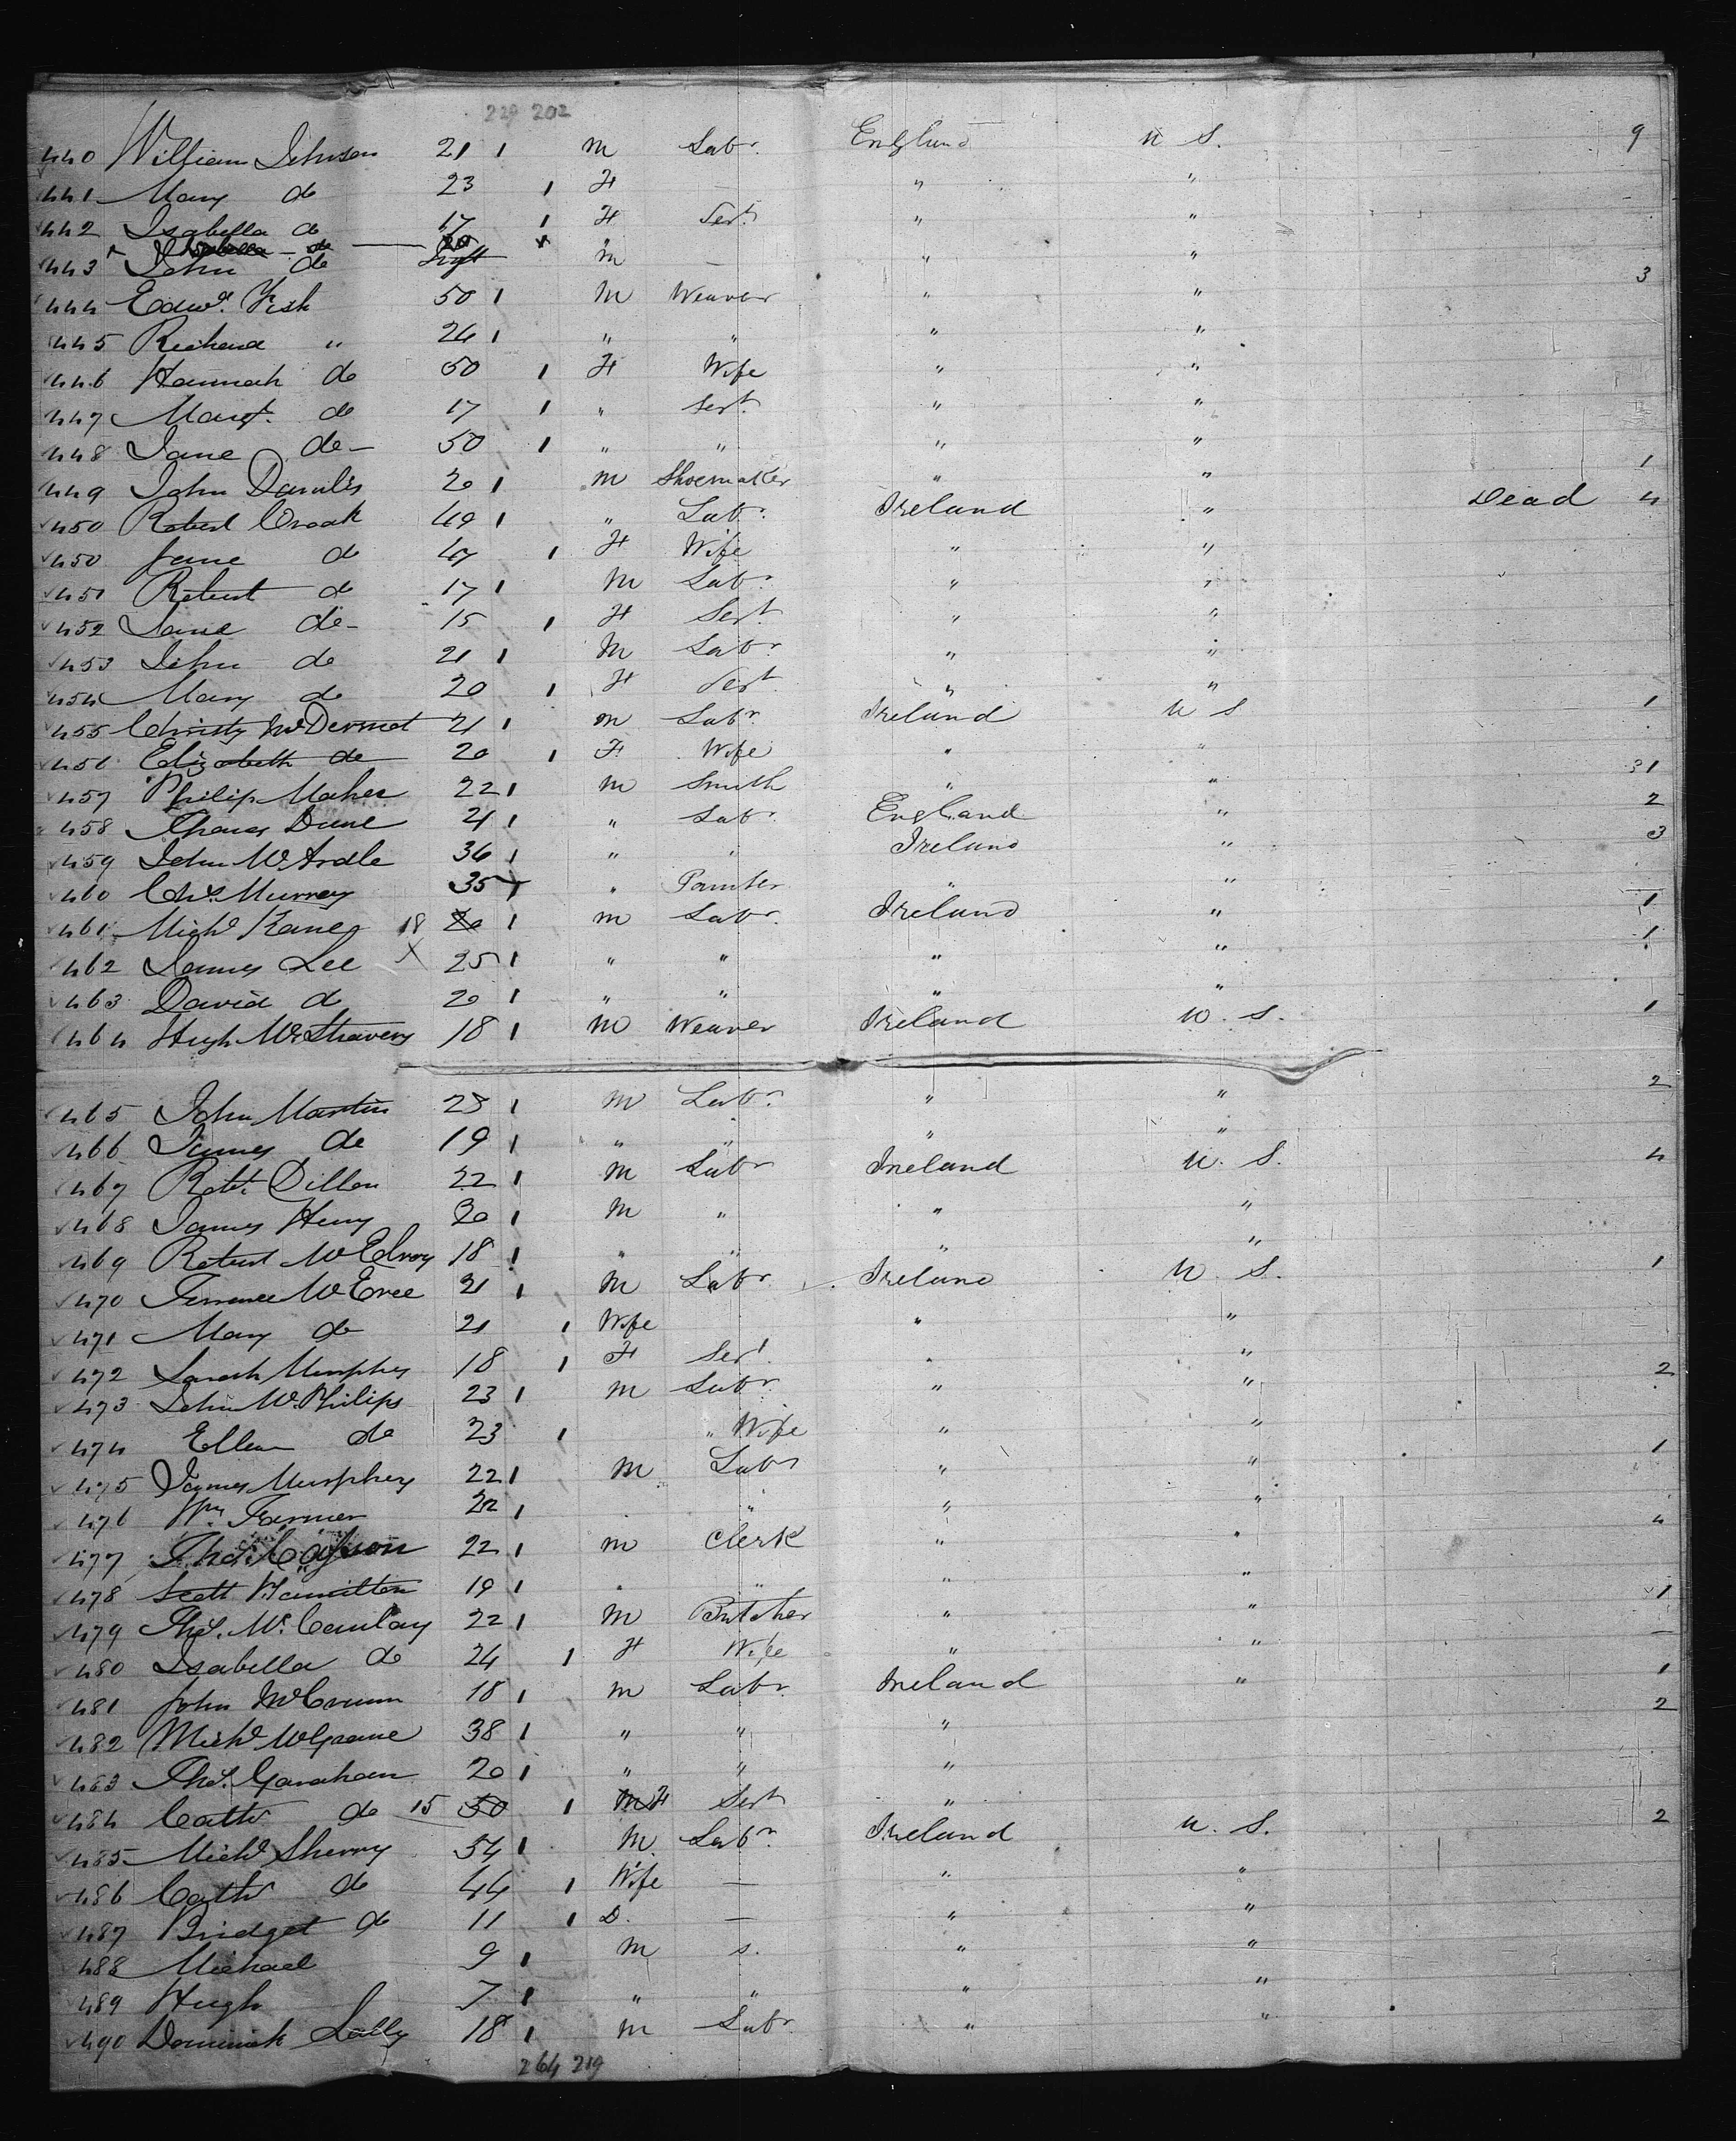 229 202
440 William Johnson 21 1 m Labr. England U S. 9
441 Mary do 23 1 F — " "
442 Isabella do 17 1 F Sert. " "
Isabella do 20
443 John do Inft m — " "
444 Edwd. Fish 50 1 M Weaver " " 3
445 Richard " 24 1 " " " "
446 Hannah do 50 1 F Wife " "
447 Margt. do 17 1 " Sert. " "
448 Jane do — 50 1 " " " "
449 John Daniels 20 1 m Shoemaker " " 1
450 Robert Croak 49 1 " Labr. Ireland " Dead 4
450 Jane do 47 1 F Wife " "
451 Robert do 17 1 M Labr. " "
452 Jane do — 15 1 F Sert. " "
453 John do 21 1 M Labr. " "
454 Mary do 20 1 F Sert. " "
455 Christy McDermot 21 1 m Labr. Ireland U S 1
456 Elizabeth do 20 1 F Wife " "
457 Philip Maher 22 1 m Smith " " 1
458 Thomas Dune 21 1 " Labr. England " 2
459 John McArdle 36 1 " " Ireland " 3
460 Chs. Murray 35 1 " Painter " "
461 Michl Kane 18 20 1 m Labr. Ireland " 1
462 James Lee X 25 1 " " " " 1
463 David do 20 1 " " " "
464 Hugh McShavery 18 1 m Weaver Ireland U. S. 1
465 John Martin 23 1 M Labr. " " 2
466 James do 19 1 " " " "
467 Robt. Dillon 22 1 m Labr Ireland U. S. 4
468 James Henry 30 1 M " " "
469 Robert McElroy 18 1 " " " "
470 Terrence McEvee 21 1 M Labr. Ireland U. S. 1
471 Mary do 21 1 Wife " "
472 Sarah Murphy 18 1 F Sert. " "
473 John McPhilips 23 1 m Labr. " " 2
474 Ellen do 23 1 " Wife " "
475 James Murphey 22 1 M Labr " " 1
476 Wm Farmer 22 1 " " "
477 Thos. 22 1 m Clerk " " 4
478 Scott Hamilton 19 1 " " " "
479 Thos. McCaulay 22 1 M Butcher " " 1
480 Isabella do 24 1 F Wife " " —
481 John McCrum 18 1 m Labr. Ireland " 1
482 Michl McGrane 38 1 " " " 2
483 Thos. Garahan 20 1 " " "
484 Cathe do 15 50 1 M F Sert "
485 Michl Sherry 54 1 M. Labr. Ireland U. S. 2
486 Cathe do 44 1 Wife — " "
487 Bridget do 11 1 D. — " "
488 Michael 9 1 m s. " "
489 Hugh 7 1 " " " "
490 Dominick Lally 18 1 m Labr. " "
264 219